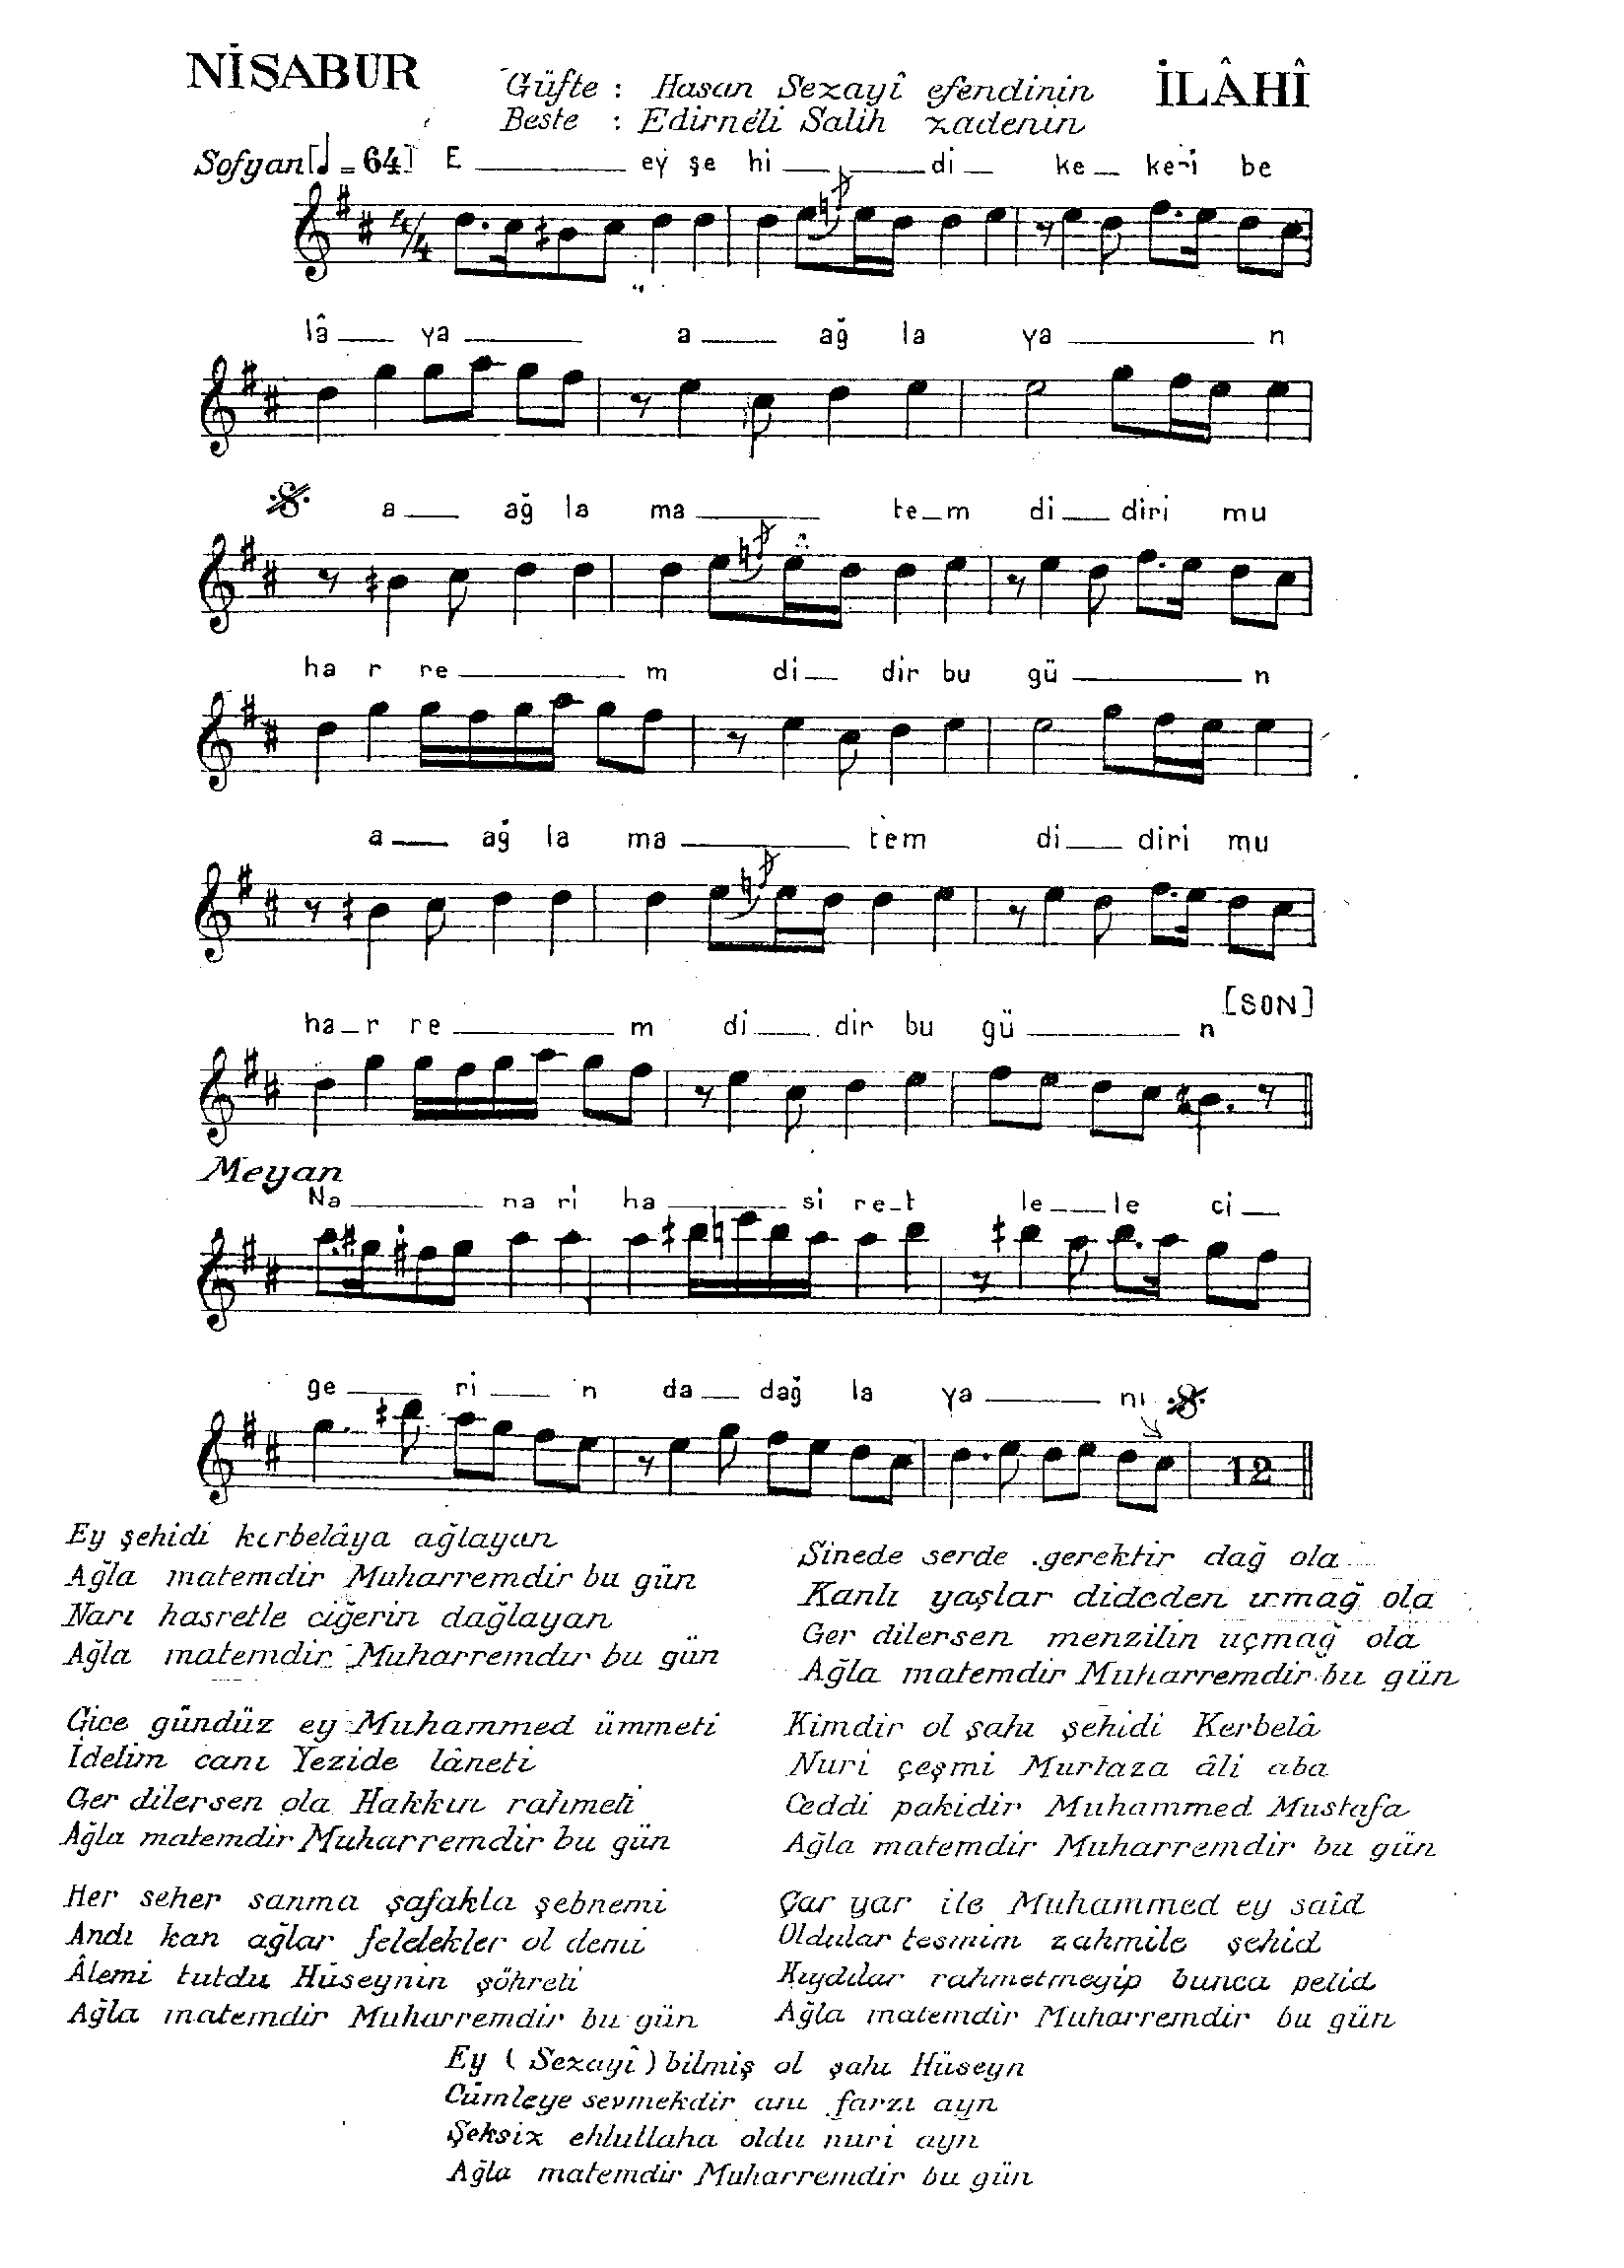 NİŞABUR
Güfte : Hasan Sezayî efendinin
Beste : Edirneli Salih zadenin
İLÂHÎ
Sofyan [♩=64]
E ey şe hi di ke keri be
4/4
lâ ya a ağ la ya n
a ağ la ma te m di diri mu
ha r re m di dir bu gü n
a ağ la ma tem di diri mu
[SON]
ha r re m di dir bu gü n
Meyan
Na na ri ha si re t le le ci
ge ri n da dağ la ya nı
12
Ey şehidi kerbelâya ağlayan
Ağla matemdir Muharremdir bu gün
Narı hasretle ciğerin dağlayan
Ağla matemdir Muharremdır bu gün
Gice gündüz ey Muhammed ümmeti
İdelim canı Yezide lâneti
Ger dilersen ola Hakkın rahmeti
Ağla matemdir Muharremdir bu gün
Her seher sanma şafakla şebnemi
Andı kan ağlar felelekler ol demi
Âlemi tutdu Hüseynin şöhreti
Ağla matemdir Muharremdir bu gün
Sinede serde gerektir dağ ola
Kanlı yaşlar dideden ırmağ ola
Ger dilersen menzilin uçmağ ola
Ağla matemdir Muharremdir bu gün
Kimdir ol şahı şehidi Kerbelâ
Nuri çeşmi Murtaza âli aba
Ceddi pakidir Muhammed Mustafa
Ağla matemdir Muharremdir bu gün
Çar yar ile Muhammed ey saîd
Oldular tesmim zahmile şehid
Kıydılar rahmetmeyip bunca pelid
Ağla matemdir Muharremdir bu gün
Ey (Sezayî) bilmiş ol şahı Hüseyn
Cümleye sevmekdir anı farzı ayn
Şeksiz ehlullaha oldu nuri ayn
Ağla matemdir Muharremdir bu gün